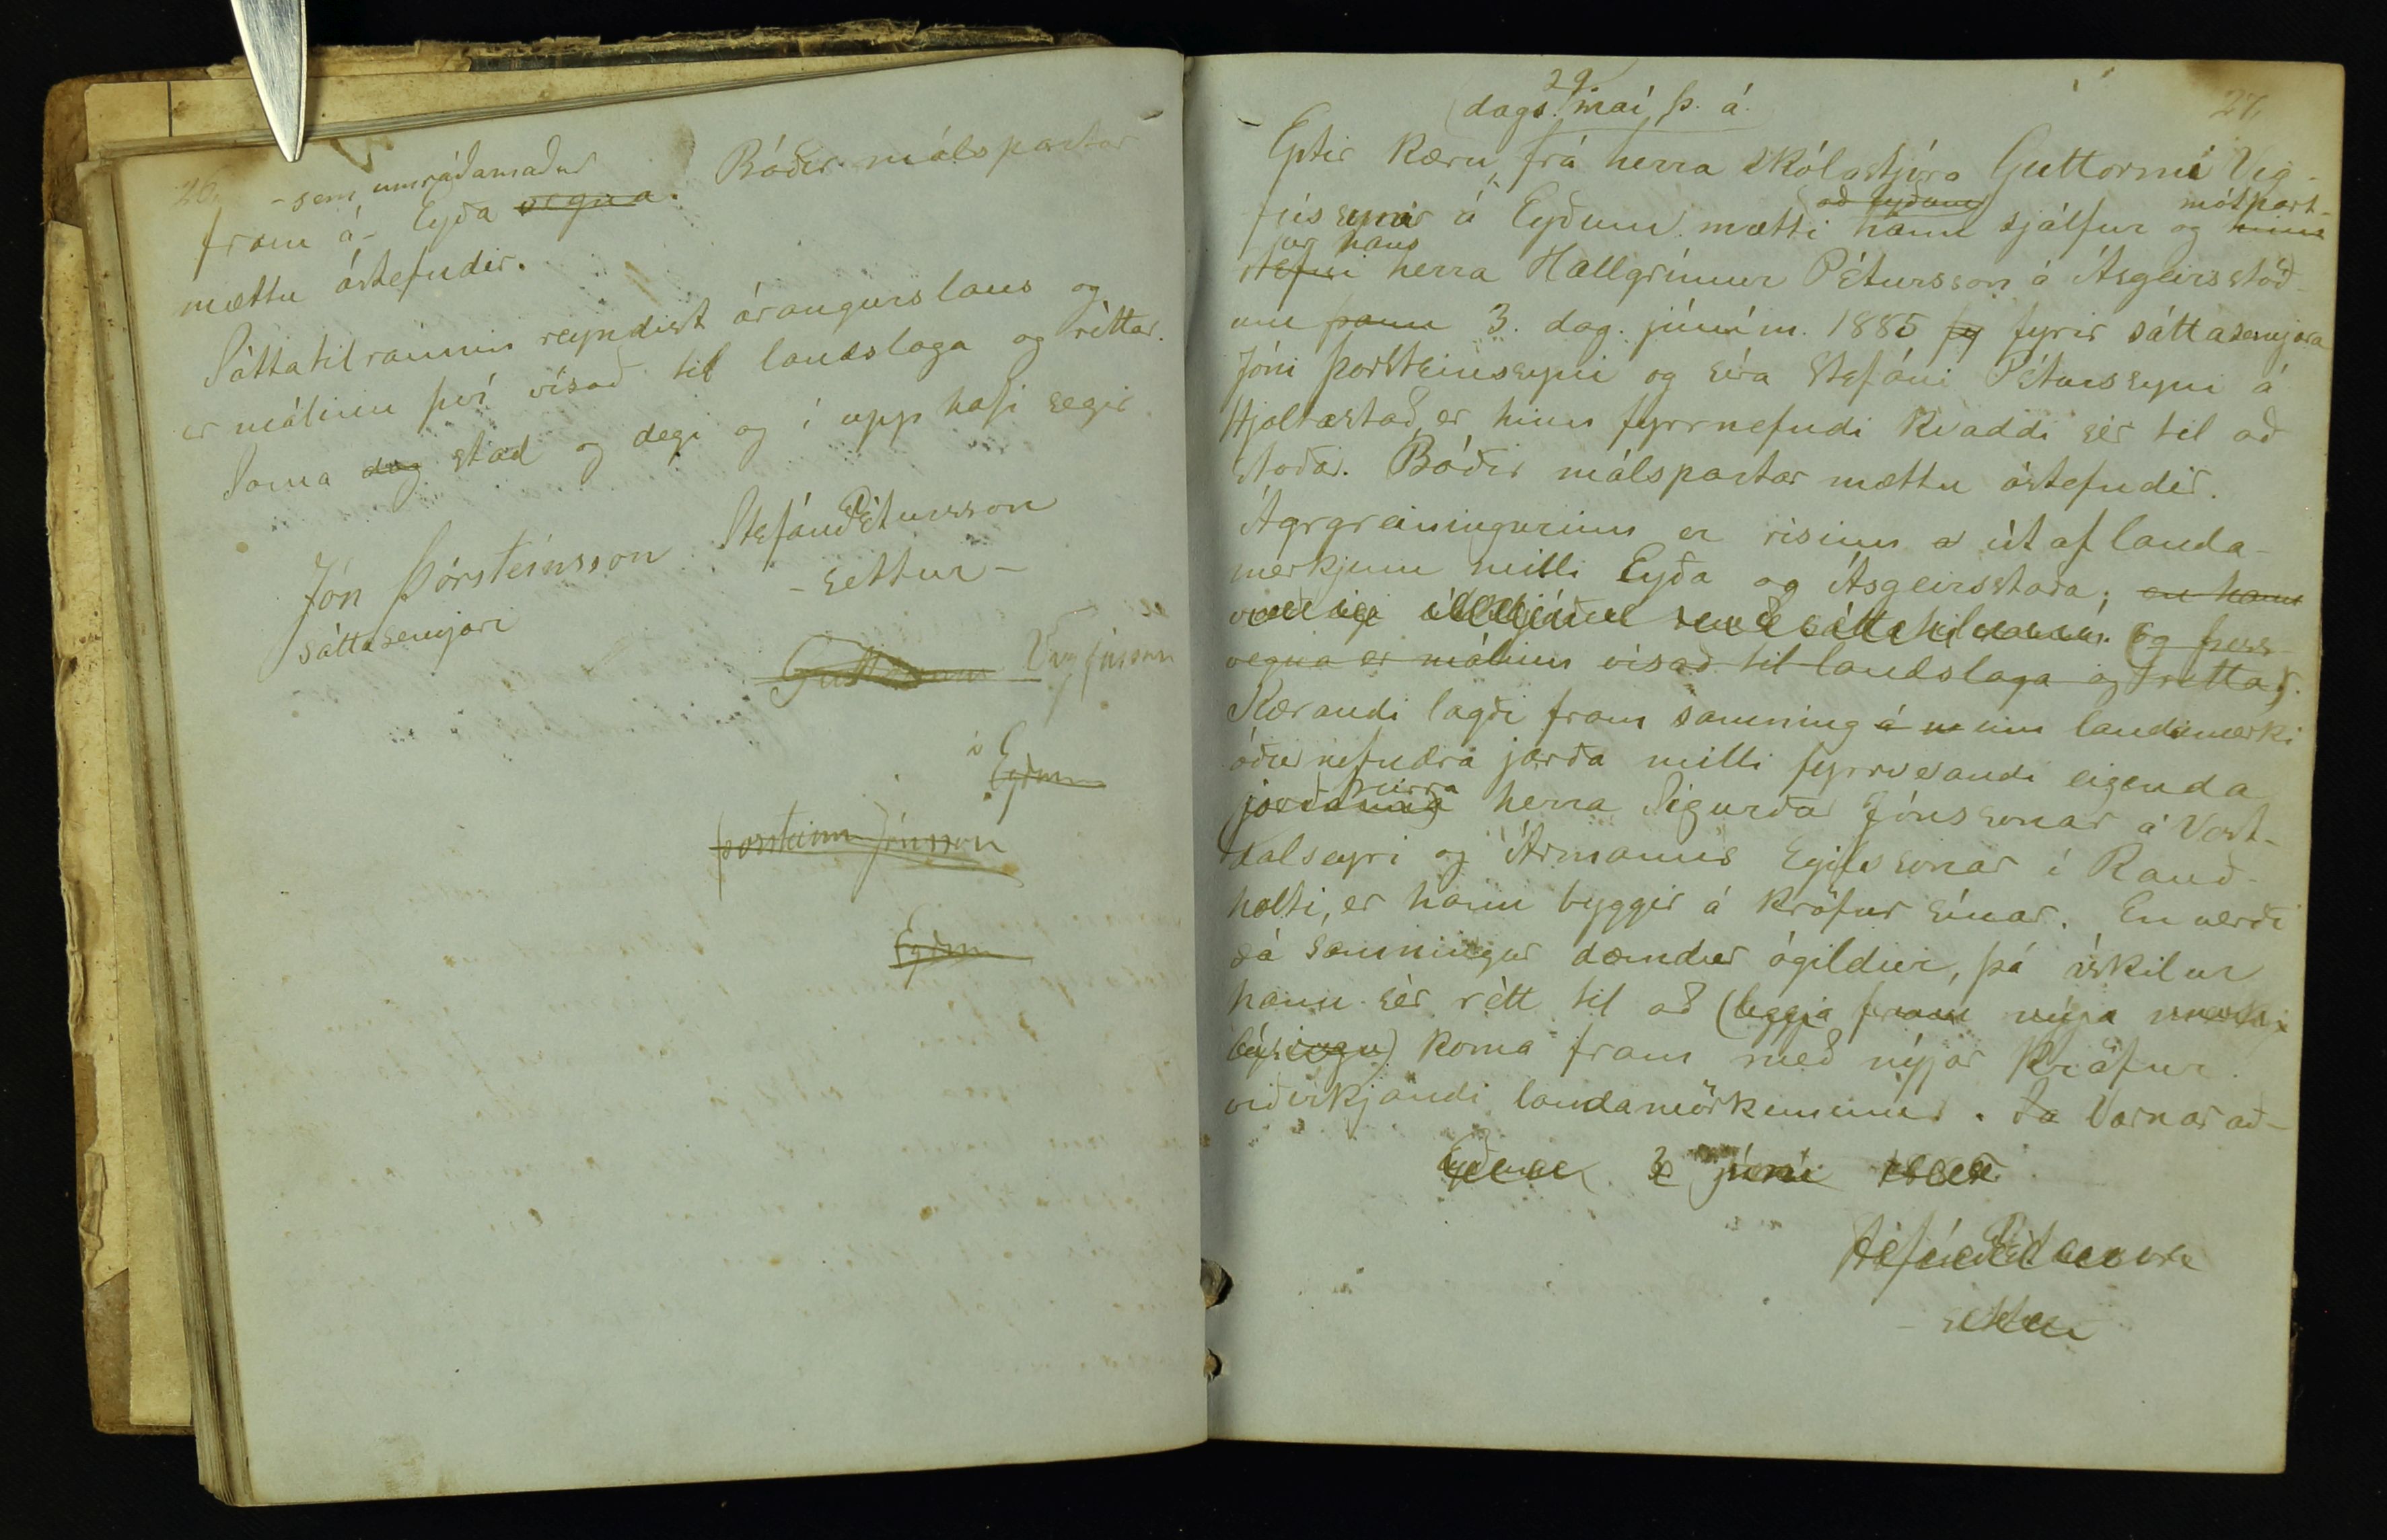 26.
- sem umráðamaður
fram á - Eyða vegna. Báðir málspartar
mættu óstefndir.
Sáttatilraunin reyndist árangurslaus og
er málinu því vísað til landslaga og réttar.
Sama dag stað og degi og í upp hafi segir
Jón Þórsteinsson Stefán Pétursson
sáttasemjari - settur -
Guttormur Vigfússon
á Eyðum
Þorsteinn Jónsson
Eyðum
27.
(dags. 29. maí þ. á.)
Eptir kæru frá herra skólastjóra Guttormi Vig-
fússyni á Eyðum mætti hann að Eyðum sjálfur og hinn mótpart-
stefni ur hans herra Hallgrímur Pétursson á Ásgeirsstöð-
um þann 3. dag júním. 1885 fy fyrir sáttasemjara
Jóni Þorsteinssyni og síra Stefáni Péturssyni á
Hjaltastað, er hinn fyrrnefndi kvaddi sér til að
stoðar. Báðir málspartar mættu óstefndir.
Ágreiningurinn er risinn a út af landa-
merkjum milli Eyða og Ásgeirsstaða; en hann
varð eigi sáttatilraun. (og þess
vegna er málinu vísað til landslaga og réttar).
Kærandi lagði fram samning á m um landamerki
áður nefndra jarða milli fyrrverandi eigenda
jarðanna þeirra herra Sigurðar Jónssonar á Vest-
dalseyri og Ármanns Egilssonar í Rauð-
holti, er hann byggir á kröfur sínar. En verði
sá samningur dæmdur ógildur, þá áskilur
hann sér rétt til að (leggja fram nýja merki
lýsingu) koma fram með nýjar kröfur
viðvíkjandi landamörkunum. Ja Varnarað-
Eyðum 3 júní 1885
Stefán Pétursson
- settur